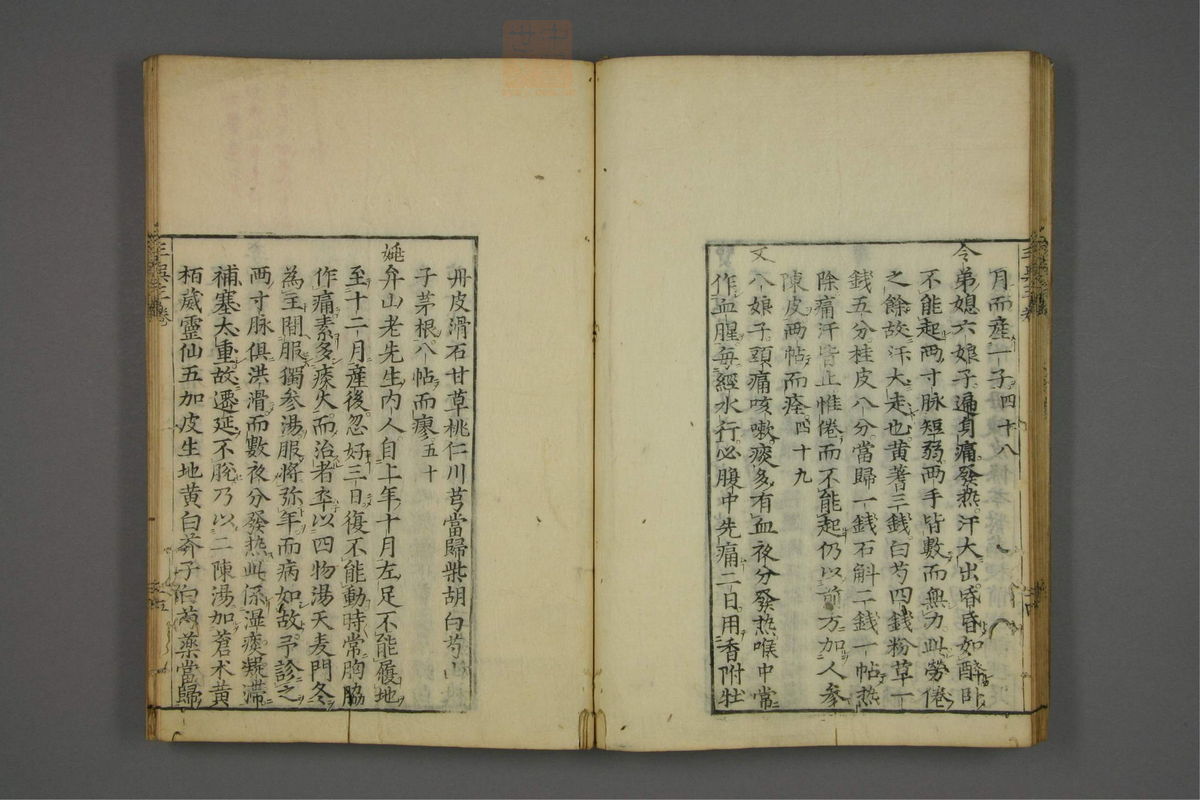 月而産一子四十八
令弟媳六娘子遍身痛發熱汗大出昏昏如醉卧
不能起両寸脉短弱両手皆數而無力此勞倦
之餘故汗大走也黄蓍三銭白芍四銭粉草一
銭五分桂皮八分當歸一銭石斛二銭一帖熱
除痛汗皆止惟倦而不能起仍以前方加人參
陳皮両帖而痊四十九
文八娘子頭痛咳嗽痰多有血夜分發熱喉中常
作血腥毎經水行必腹中先痛二日用香附牡
丹皮滑石甘草桃仁川芎當歸柴胡白芍山
子茅根八帖而瘳五十
弁山老先生内人自上年十月左足不能履地
至十二月産後忽好三日復不能動時常胸脇
作痛素多痰火而治者卒以四物湯天麦門冬
為主間服獨参湯服將弥年而病如故予診之
両寸脉俱洪滑而數夜分發熱此係湿痰凝滞
補塞太重故遷延不脱乃以二陳湯加蒼朮黄
栢葳靈仙五加皮生地黄白芥子白芍藥當歸